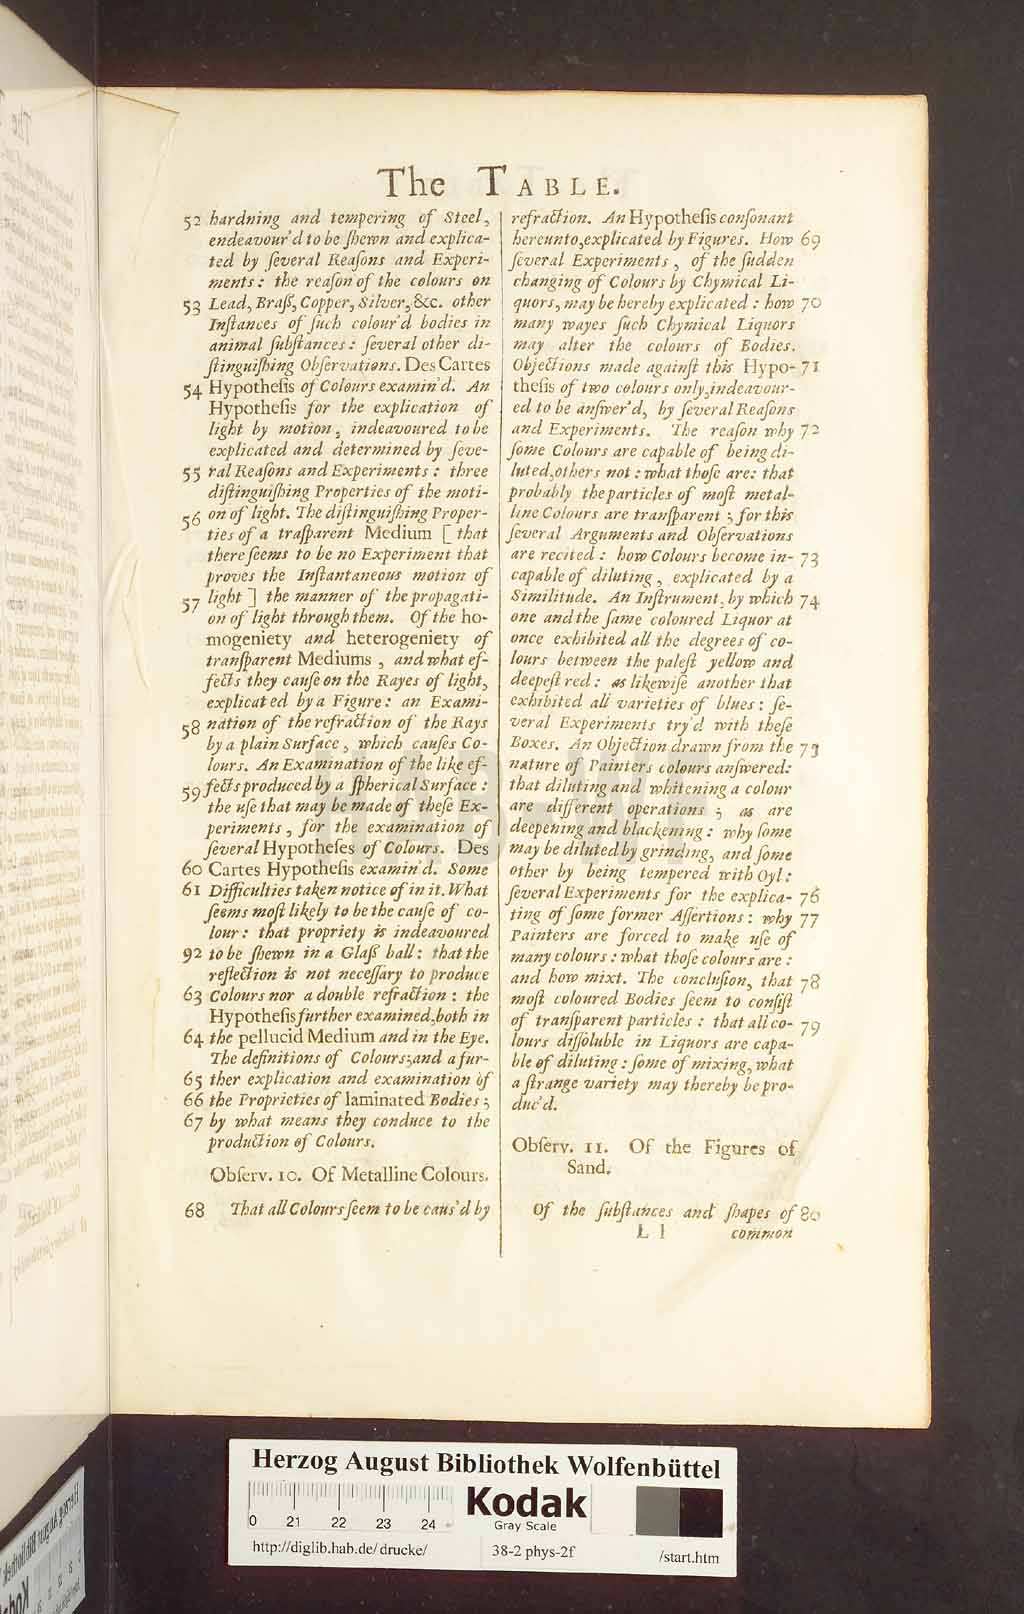 The TABLE.
52 hardning and tempering of Steel,
endeavour'd to be ſhewn and explica-
ted by ſeveral Reaſons and Experi-
ments: the reaſon of the colours on
53 Lead, Braſs, Copper, Silver, &c. other
Inſtances of ſuch colour'd bodies in
animal ſubſtances: ſeveral other di-
ſtinguiſhing Obſervations. Des Cartes
54 Hypotheſis of Colours examin'd. An
Hypotheſis for the explication of
light by motion, indeavoured to be
explicated and determined by ſeve-
55 ral Reaſons and Experiments: three
diſtinguiſhing Properties of the moti-
56 on of light. The diſtinguiſhing Proper-
ties of a traſparent Medium [that
there ſeems to be no Experiment that
proves the Inſtantaneous motion of
57 light] the manner of the propagati-
on of light through them. Of the ho-
mogeniety and heterogeniety of
tranſparent Mediums, and what ef-
fects they cauſe on the Rayes of light,
explicated by a Figure: an Exami-
58 nation of the refraction of the Rays
by a plain Surface, which cauſes Co-
lours. An Examination of the like ef-
59 fects produced by a ſpherical Surface:
the uſe that may be made of theſe Ex-
periments, for the examination of
ſeveral Hypotheſes of Colours. Des
60 Cartes Hypotheſis examin'd. Some
61 Difficulties taken notice of in it. What
ſeems moſt likely to be the cauſe of co-
lour: that propriety is indeavoured
92 to be ſhewn in a Glaſs ball: that the
reflection is not neceſſary to produce
63 Colours nor a double refraction: the
Hypotheſis further examined, both in
64 the pellucid Medium and in the Eye.
The definitions of Colours; and a fur-
65 ther explication and examination of
66 the Proprieties of laminated Bodies;
67 by what means they conduce to the
production of Colours.
Obſerv. 10. Of Metalline Colours.
68 That all Colours ſeem to be caus'd by
refraction. An Hypotheſis conſonant
hereunto, explicated by Figures. How 69
ſeveral Experiments, of the ſudden
changing of Colours by Chymical Li-
quors, may be hereby explicated: how 70
many wayes ſuch Chymical Liquors
may alter the colours of Bodies.
Objections made againſt this Hypo- 71
theſis of two colours only, indeavour-
ed to be anſwer'd, by ſeveral Reaſons
and Experiments. The reaſon why 72
ſome Colours are capable of being di-
luted, others not: what thoſe are: that
probably the particles of moſt metal-
line Colours are tranſparent; for this
ſeveral Arguments and Obſervations
are recited: how Colours become in- 73
capable of diluting, explicated by a
Similitude. An Inſtrument, by which 74
one and the ſame coloured Liquor at
once exhibited all the degrees of co-
lours between the paleſt yellow and
deepeſt red: as likewiſe another that
exhibited all varieties of blues: ſe-
veral Experiments try'd with theſe
Boxes. An Objection drawn from the 75
nature of Painters colours anſwered:
that diluting and whitening a colour
are different operations; as are
deepening and blackening: why ſome
may be diluted by grinding, and ſome
other by being tempered with Oyl:
ſeveral Experiments for the explica- 76
ting of ſome former Aſſertions: why 77
Painters are forced to make uſe of
many colours: what thoſe colours are:
and how mixt. The concluſion, that 78
moſt coloured Bodies ſeem to conſiſt
of tranſparent particles: that all co- 79
lours diſſoluble in Liquors are capa-
ble of diluting: ſome of mixing, what
a ſtrange variety may thereby be pro-
duc'd.
Obſerv. 11. Of the Figures of
Sand.
Of the ſubſtances and ſhapes of 80
L l common
HAB-WF
Herzog August Bibliothek Wolfenbüttel
0 21 22 23 24
Kodak
Gray Scale
http://diglib.hab.de/drucke/ 38-2 phys-2f /start.htm